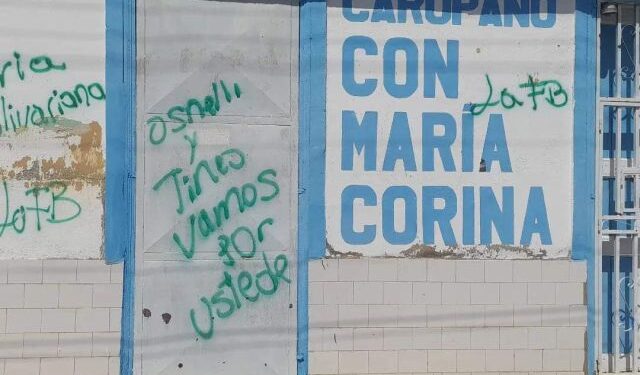 ria
olivariana
La FB
osnelli
y
Tinco
Vamos
por
ustede
CARÚPANO
CON
MARÍA
CORINA
La FB